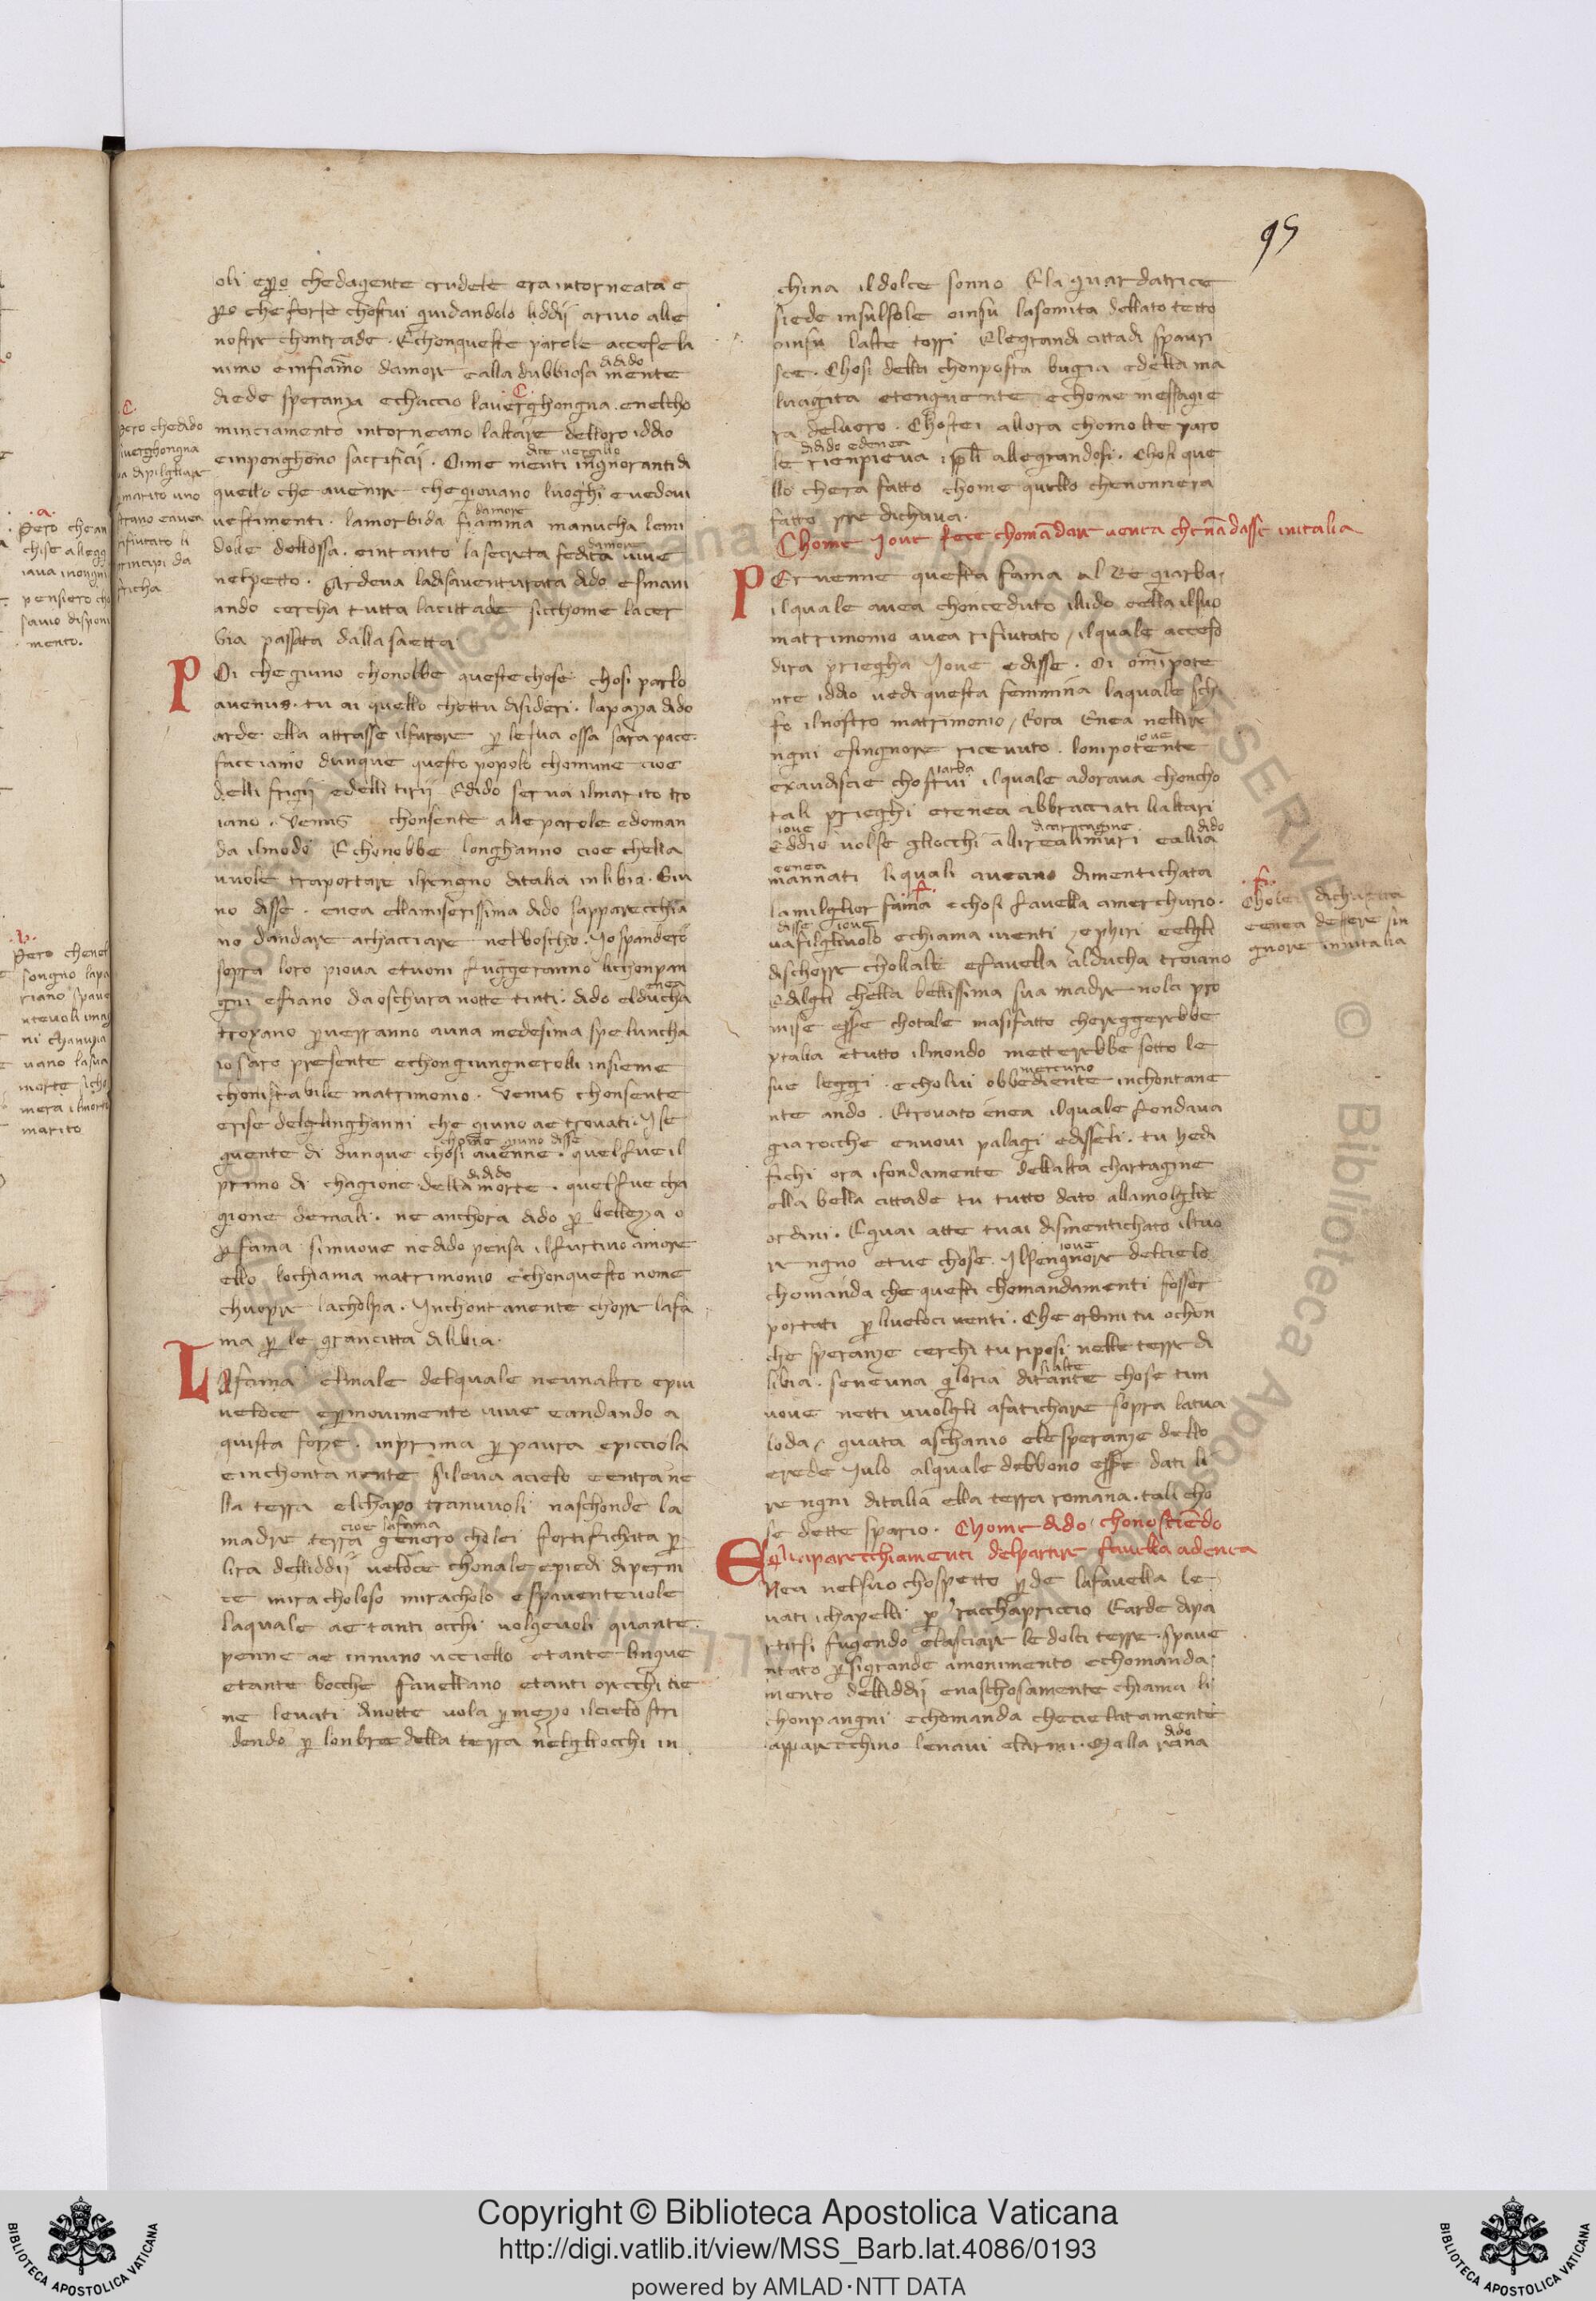 95
oli epero chedagente crudele era intorneata e
pero che forse chostui guidandolo liddij arivo alle
nostre chontrade. Echonqueste parole accese la
nimo e infiamo damore e alla dubbiosa mente
didido
diede speranza e chaccio lavergghongna. e nelcho
c
minciamento intorneano laltare delloro iddio
e inponghono sacrificii. Oime menti ingnoranti di
dice vergilio
quello che avenire che giovano luoghi e vedovi
vestimenti. la morbida fiamma manucha lemi
damore
dolle dellossa. e intanto la secreta fedita vive
damore
nelpetto. Ardeva la disaventurata dido e smani
ando cercha tutta la cittade sicchome la cer
via passata dalla saetta.
c.
pero chedido
siverghongna
va dipilgliare
marito uno
strano e avea
rifiutato li
principi da
fricha
POi che giuno chonobbe queste chose chosi parlo
avenus. tu ai quello chettu disideri. la paza dido
arde ella attrasse ilfurore per le sua ossa sara pace.
facciamo dunque questo popolo chomune cioe
delli frigij e delli tirij Edido serva ilmarito tro
iano. Venus chonsente alle parole e doman
da ilmodo E chonobbe longhanno cioe chella
vuole traportare ilrengno ditalia in libia. Giu
no disse. enea ella miserissima dido sapparecchia
no dandare achacciare nel boscho. Io spandero
sopra loro piova e tuoni fuggeranno lichonpan
gni e fiano da oschura notte tinti. dido elducha
enea
troyano perverranno a una medesima speluncha
io saro presente e chongiungnerolli insieme
chonistabile matrimonio. Venus chonsente
e rise delglinghanni che giuno ae trovati. Ise
guente di dunque chosi avenne. quel fue il
chome giuno disse
primo di chagione della morte. quel fue cha
didido
gione demali. ne anchora dido per bellezza o
per fama si muove ne dido pensa il furtivo amore
ello lo chiama matrimonio e chonquesto nome
chuopre la cholpa. Inchontanente chorre la fa
ma per le gran citta dilibia.
LA fama e male delquale neunaltro e piu
veloce e per movimento vive e andando a
quista forze. inprima per paura e picciola
e inchontanente si leva acielo e entra ne
lla terra elchapo tranuvoli naschonde la
madre terra genero cholei fortifichata per
cioe la fama
lira delliddij veloce chonale e piedi diperni
ce mira choloso miracholo e spaventevole
laquale ae tanti occhi volgevoli quante
penne ae in nuno uciello e tante lingue
e tante bocche favellano e tanti orecchi tie
ne levati dinotte vola per mezzo ilcielo stri
dendo per lonbre della terra nelgliocchi in
china il dolce sonno E la guardatrice
siede insulsole o insu la somita dellato tetto
o insu lalte torri E legrandi cittadi spauri
sce. Chosi della chonposta bugia e della ma
lvagita e tenguente e chome messagie
ra delvero. Chostei allora chomolte paro
didido edenea
le rienpieva i popoli allegrandosi. Chosi que
llo chera fatto chome quello chenonnera
fatto predichava.
Chome Iove fece chomandare a enea chennandasse initalia
PErvenne questa fama al Re giarba,
ilquale avea chonceduto illido e ella ilsuo
matrimonio avea rifiutato, ilquale acceso
dira priegha Iove e disse. Oi omnipote
nte iddio vedi questa femmina laquale schi
fo ilnostro matrimonio, Eora Enea nellire
ngni e singnore ricevuto. lonipotente
iove
exaudiscie chostui ilquale adorava choncho
iarba
tali prieghi e tenea abbracciati lialtari
iove
Eddio volse gliocchi allirealimuri e alli a
dicartagine
dido
eenea
mannati liquali aveano dimentichata
la milglior fama e chosi favella a merchurio.
f.
disse iove
va filgluolo e chiama i venti zephiri e elgli
dischorre chollale e favella alducha troiano
Edilgli chella bellissima sua madre nolci pro
mise essere chotale ma sifatto chereggerebbe
ytalia e tutto ilmondo metterebbe sotto le
sue leggi. e cholui obbediente inchontane
mercurio
nte ando. Etrovato enea ilquale fondava
gia rocche e nuovi palagi edisseli. tu hedi
fichi ora ifondamente dellalta chartagine
ella bella cittade tu tutto dato allamolglie
ordini. E quai atte tuai dismentichato iltuo
rengno e tue chose. Il Sengnore delcielo
iove
chomanda che questi chomandamenti fosser
portati per liveloci venti. Che ordini tu o chon
che speranze cerchi tu riposi nelle terre di
libia. se neuna gloria ditante chose tim
sialte
uove netti vuolgli afatichare sopra la tua
loda, guata aschanio ele speranze dello
erede Iulo alquale debbono essere dati li
rengni ditalia ella terra romana. tali cho
se dette spario. Chome dido chonoscendo
gliaparecchiamenti delpartire favella adenea
ENea nelsuo chospetto perde lafavella le
vati ichapelli per raccapriccio Earde dipa
rtirsi fugendo elasciare le dolci terre. spave
ntato per sigrande amonimento e chomanda
mento delliddij e naschosamente chiama li
chonpangni e chomanda checielatamente
apparecchino le navi elarmi. Malla reina
dido
.f.
Cholei dichiarita
eenea dessere sin
gnore innitalia
.a.
Pero che an
chise allegg
iava in ongni
pensiero cho
savio disponi
mento.
.b.
Pero chenel
songno lapa
riano spave
ntevoli imag
ni chanuzia
vano la sua
morte sicho
mera ilmorto
marito
Copyright © Biblioteca Apostolica Vaticana
http://digi.vatlib.it/view/MSS_Barb.lat.4086/0193
powered by AMLAD·NTT DATA
BIBLIOTECA APOSTOLICA VATICANA
BIBLIOTECA APOSTOLICA VATICANA